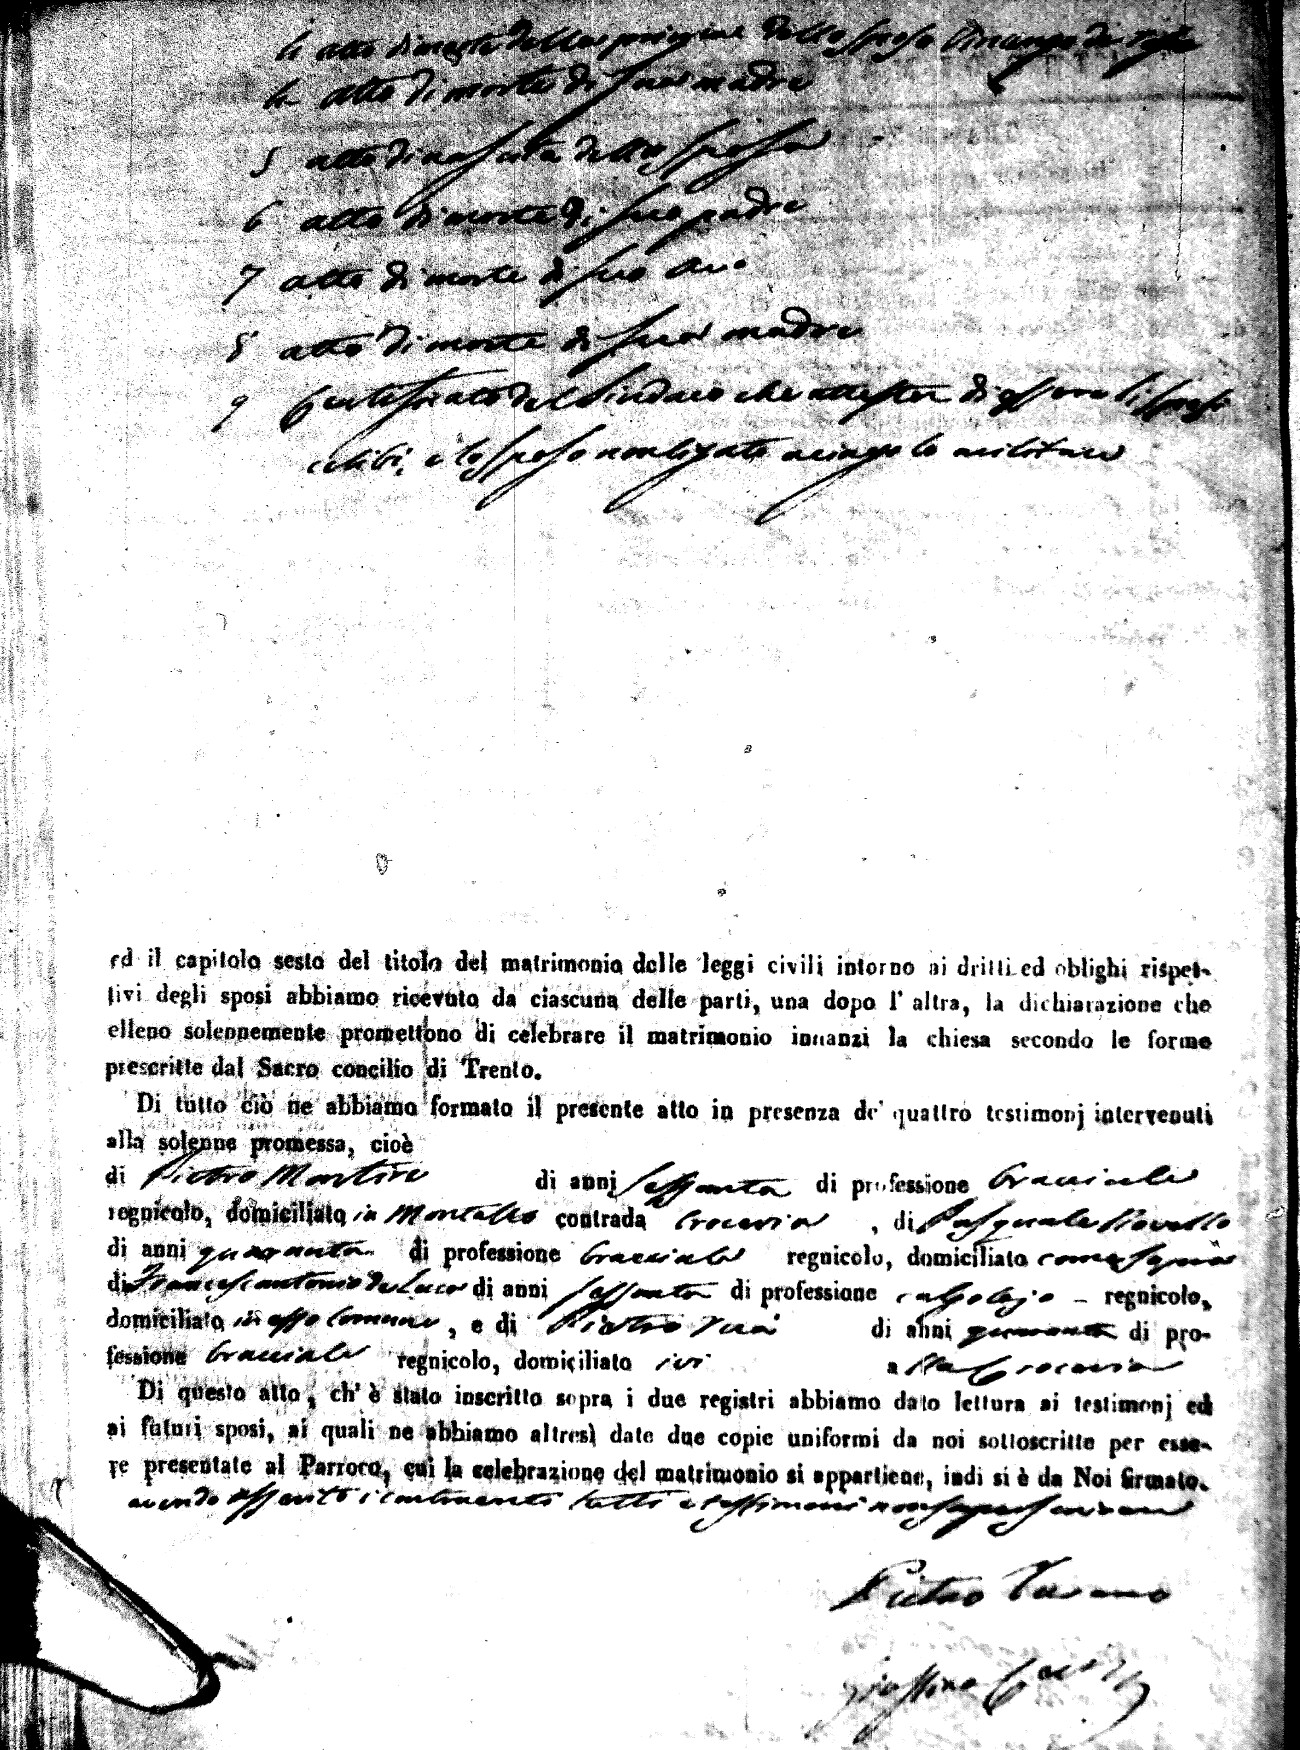 atto di morte della prima dello sposo
4 atto di morte di sua madre
5 atto di nascita della sposa
6 atto di morte di suo padre
7 atto di morte di suo avo
8 atto di morte di sua madre
9 Certificato del Sindaco che attesta di essere li sposi
celibi, e lo sposo non ligato a cingolo militare
ed il capitolo sesto del titolo del matrimonio delle leggi civili intorno ai dritti ed oblighi rispet-
tivi degli sposi abbiamo ricevuto da ciascuna delle parti, una dopo l' altra, la dichiarazione che
elleno solennemente promettono di celebrare il matrimonio innanzi la chiesa secondo le forme
prescritte dal Sacro concilio di Trento.
Di tutto ciò ne abbiamo formato il presente atto in presenza de' quattro testimonj intervenuti
alla solenne promessa, cioè
di Pietro Martire di anni sessanta di professione bracciale
regnicolo, domiciliato in Montalto contrada Crocevia , di Pasquale
di anni quaranta di professione bracciale regnicolo, domiciliato come sopra
di Francescantonio de Luca di anni sessanta di professione calzolajo - regnicolo,
domiciliato in esso Comune , e di Pietro di anni quaranta di pro-
fessione bracciale regnicolo, domiciliato ivi alla Crocevia
Di questo atto, ch' è stato inscritto sopra i due registri abbiamo dato lettura ai testimonj ed
ai futuri sposi, ai quali ne abbiamo altresì date due copie uniformi da noi sottoscritte per esse-
re presentate al Parroco, cui la celebrazione del matrimonio si appartiene, indi si è da Noi firmato.
avendo asserito i contraenti tutti e testimoni non saper scrivere
Pietro